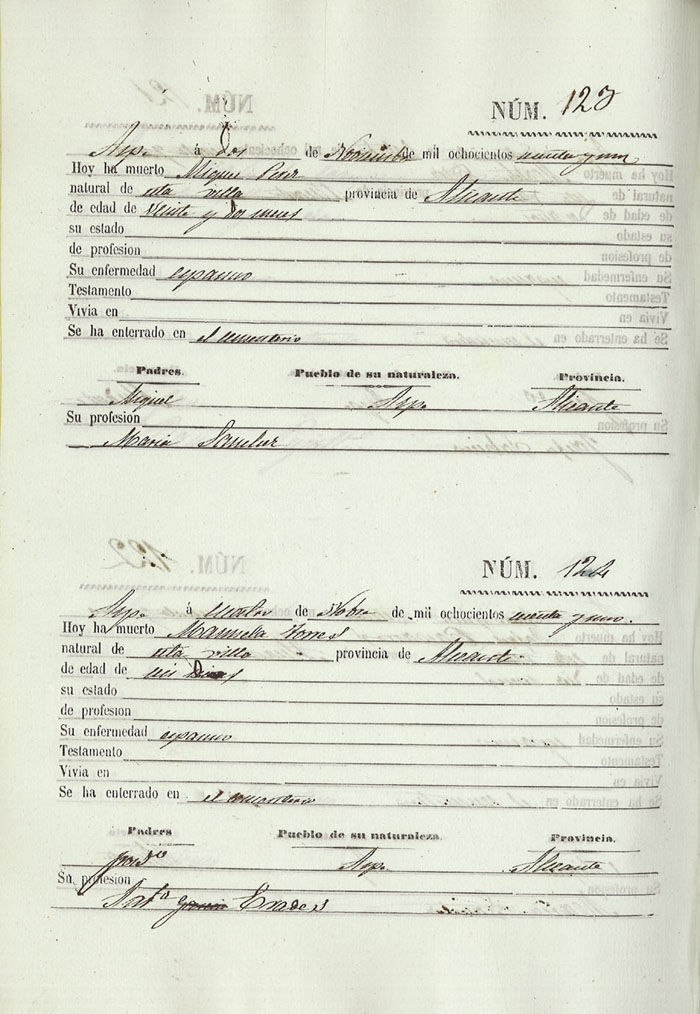 NÚM. 123
Aspe á Dos de Noviembre de mil ochocientos
Hoy ha muerto Miguel
natural de esta villa provincia de Alicante
de edad de Veinte y dos meses
su estado
de profesion
Su enfermedad espasmo
Testamento
Vivia en
Se ha enterrado en el cementerio
Padres. Pueblo de su naturaleza. Provincia.
Miguel Aspe Alicante
Su profesion
Maria
NÚM. 124
Aspe á cuatro de Nobre de mil ochocientos
Hoy ha muerto Manuela Torres
natural de esta villa provincia de Alicante
de edad de
su estado
de profesion
Su enfermedad espasmo
Testamento
Vivia en
Se ha enterrado en el cementerio
Padres Pueblo de su naturaleza. Provincia.
Aspe Alicante
Su profesion